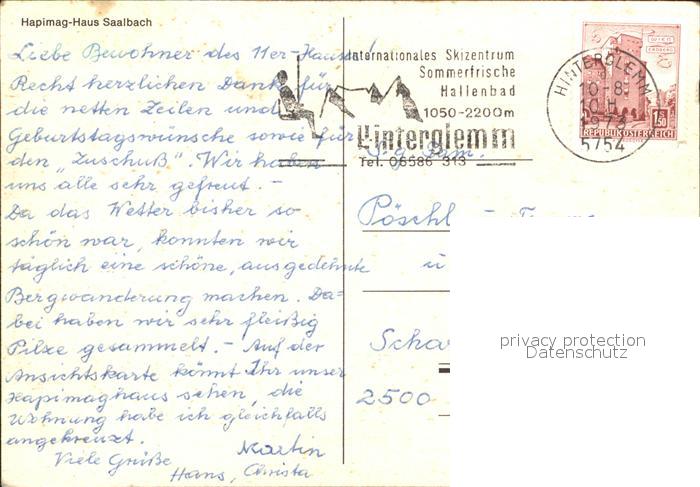 Hapimag-Haus Saalbach
Liebe Bewohner des 11er-Hauses!
Recht herzlichen Dank für
die netten Zeilen und
Geburtstagswünsche sowie für
den „Zuschuß“. Wir haben
uns alle sehr gefreut. –
Da das Wetter bisher so
schön war, konnten wir
täglich eine schöne, ausgedehnte
Bergwanderung machen. Da=
bei haben wir sehr fleißig
Pilze gesammelt. – Auf der
Ansichtskarte könnt Ihr unser
Hapimaghaus sehen, die
Wohnung habe ich gleichfalls
angekreuzt.
Viele Grüße
Martin
Hans, Christa
Internationales Skizentrum
Sommerfrische
Hallenbad
1050-2200m
Hinterglemm
Tel. 06586 313
HINTERGLEMM
10-8
10 H
1973
5754
WIEN
ERDBERG
1.50
REPUBLIK ÖSTERREICH
S.g. Fam.
Pöschl
u
Scha
2500
privacy protection
Datenschutz